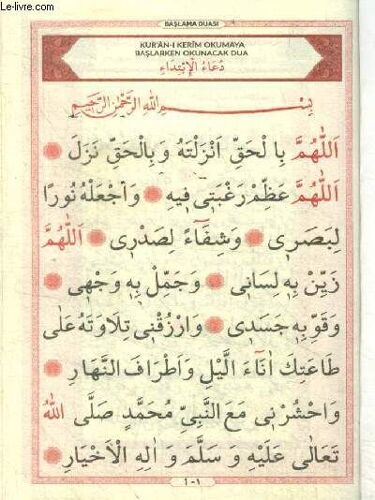 Le-livre.com
BAŞLAMA DUASI
KUR'ÂN-I KERİM OKUMAYA
BAŞLARKEN OKUNACAK DUA
دُعَاءُ الْاِبْتِدَاءِ
بِسْمِ اللهِ الرَّحْمٰنِ الرَّحِيمِ
اَللّٰهُمَّ بِالْحَقِّ اَنْزَلْتَهُ وَبِالْحَقِّ نَزَلَ
اَللّٰهُمَّ عَظِّمْ رَغْبَتِى فِيهِ وَاجْعَلْهُ نُورًا
لِبَصَرِى وَشِفَاءً لِصَدْرِى اَللّٰهُمَّ
زَيِّنْ بِهِ لِسَانِى وَجَمِّلْ بِهِ وَجْهِى
وَقَوِّ بِهِ جَسَدِى وَارْزُقْنِى تِلَاوَتَهُ عَلٰى
طَاعَتِكَ اٰنَاءَ الَّيْلِ وَاَطْرَافَ النَّهَارِ
وَاحْشُرْنِى مَعَ النَّبِىِّ مُحَمَّدٍ صَلَّى اللهُ
تَعَالٰى عَلَيْهِ وَسَلَّمَ وَاٰلِهِ الْاَخْيَارِ
١-1